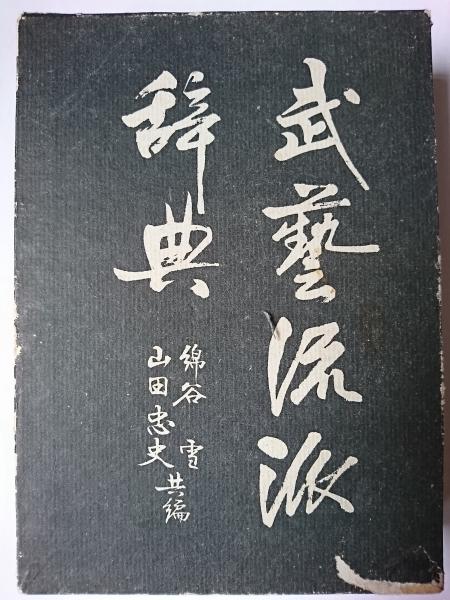 武藝流派
辞典
綿谷 雪
山田忠史
共編